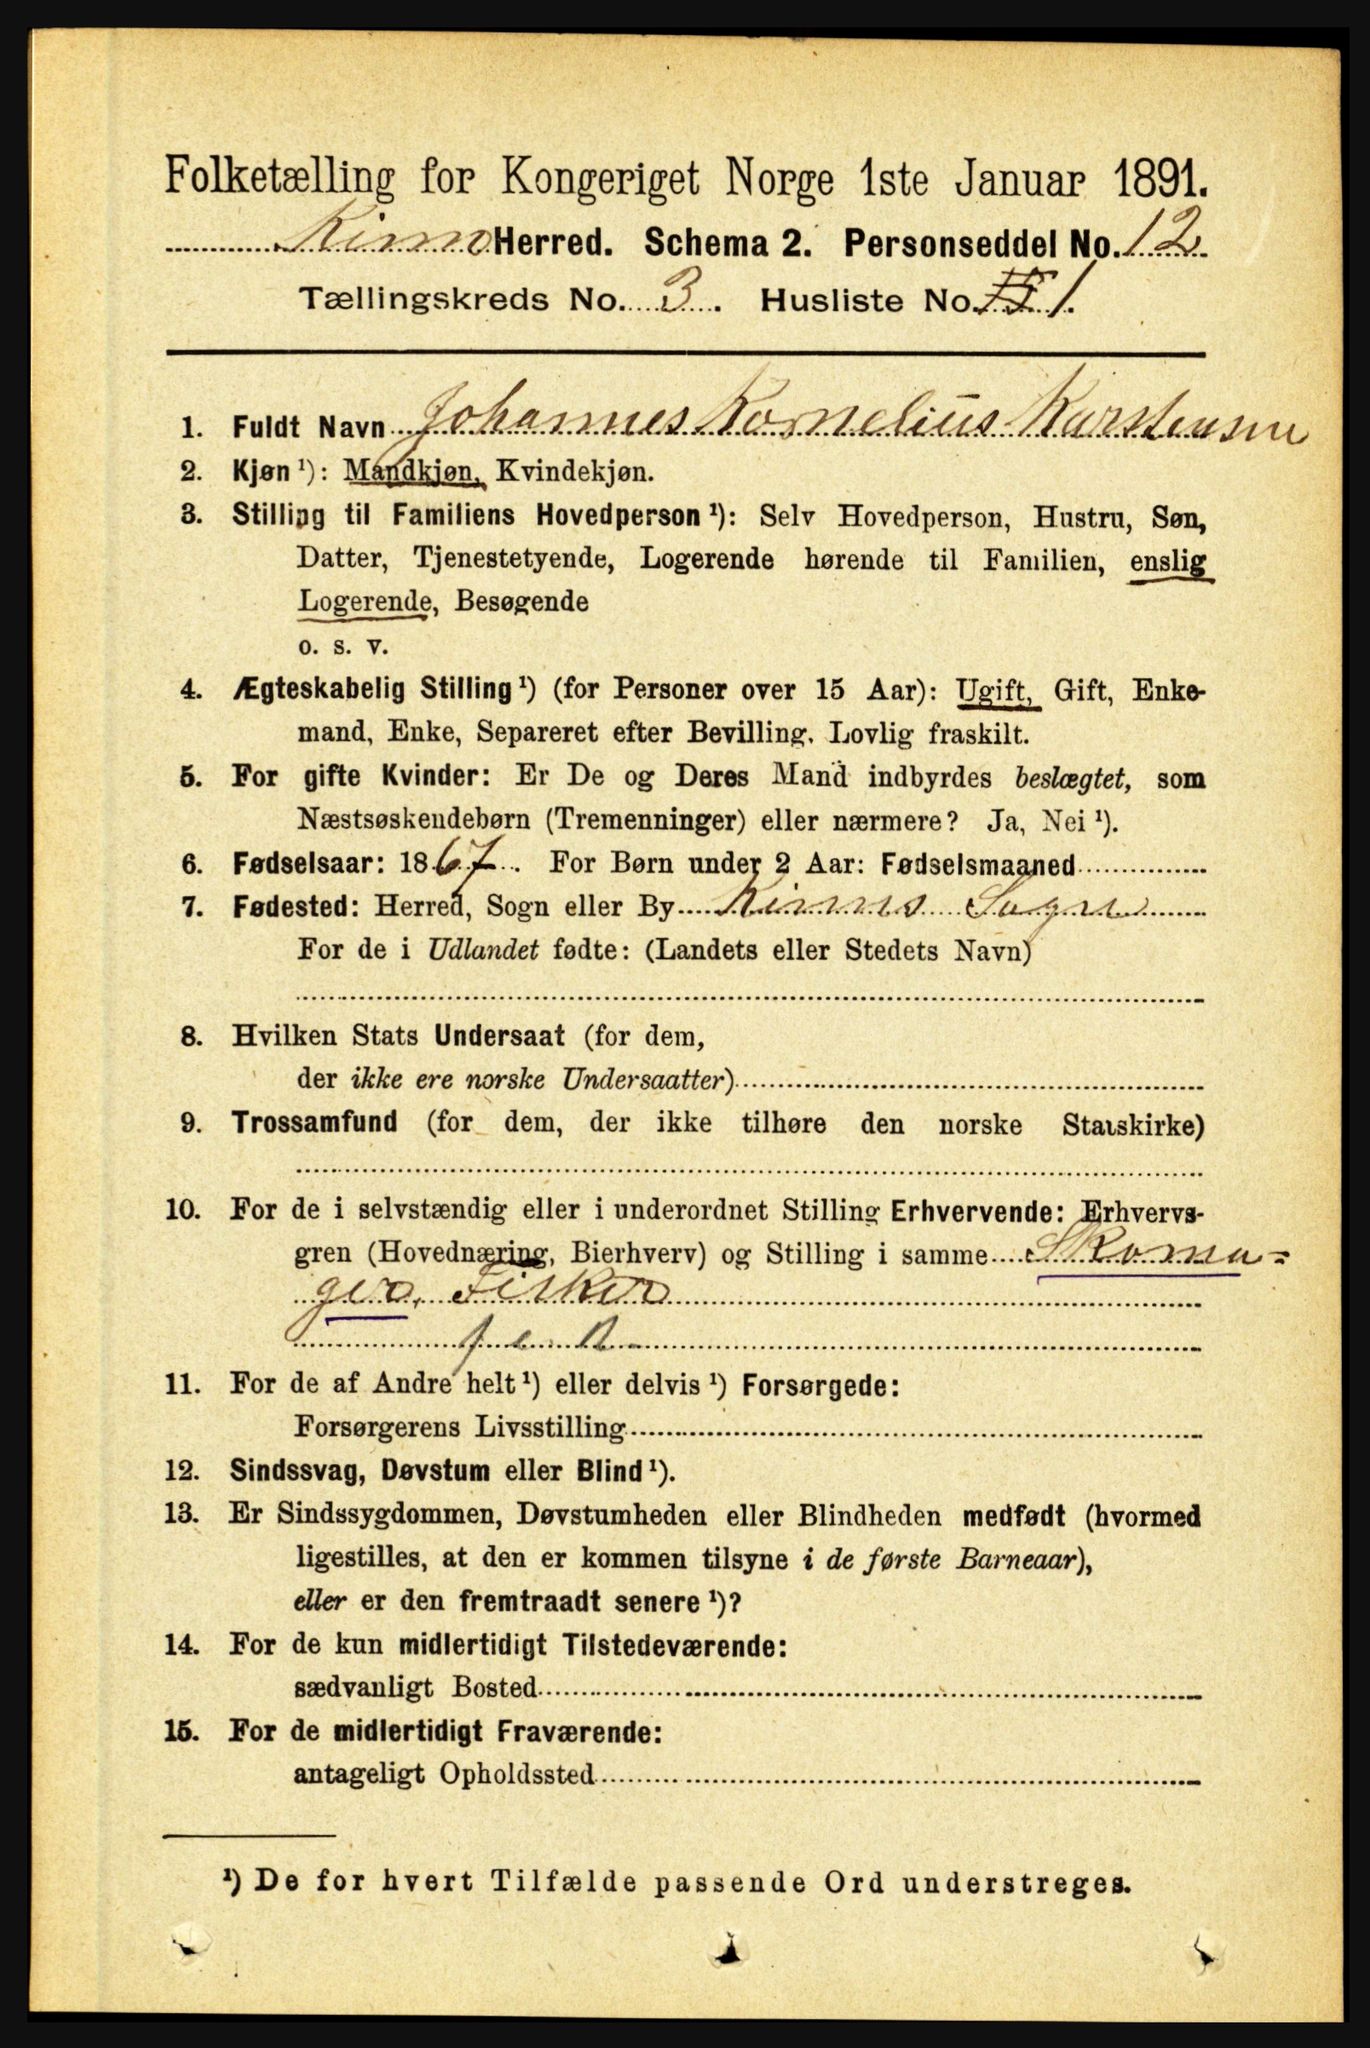 Folketælling for Kongeriget Norge 1ste Januar 1891.
Kinn Herred. Schema 2. Personseddel No. 12
Tællingskreds No. 3. Husliste No. 1.
1. Fuldt Navn Johannes Kornelius Karstensen
2. Kjøn ¹): Mandkjøn, Kvindekjøn.
3. Stilling til Familiens Hovedperson ¹): Selv Hovedperson, Hustru, Søn,
Datter, Tjenestetyende, Logerende hørende til Familien, enslig
Logerende, Besøgende
o. s. v.
4. Ægteskabelig Stilling ¹) (for Personer over 15 Aar): Ugift, Gift, Enke-
mand, Enke, Separeret efter Bevilling. Lovlig fraskilt.
5. For gifte Kvinder: Er De og Deres Mand indbyrdes beslægtet, som
Næstsøskendebørn (Tremenninger) eller nærmere? Ja, Nei ¹).
6. Fødselsaar: 1867. For Børn under 2 Aar: Fødselsmaaned
7. Fødested: Herred, Sogn eller By Kinns Sogn
For de i Udlandet fødte: (Landets eller Stedets Navn)
8. Hvilken Stats Undersaat (for dem,
der ikke ere norske Undersaatter)
9. Trossamfund (for dem, der ikke tilhøre den norske Statskirke)
10. For de i selvstændig eller i underordnet Stilling Erhvervende: Erhvervs-
gren (Hovednæring, Bierhverv) og Stilling i samme Skoma-
ger, Fisker
11. For de af Andre helt ¹) eller delvis ¹) Forsørgede:
Forsørgerens Livsstilling
12. Sindssvag, Døvstum eller Blind ¹).
13. Er Sindssygdommen, Døvstumheden eller Blindheden medfødt (hvormed
ligestilles, at den er kommen tilsyne i de første Barneaar),
eller er den fremtraadt senere ¹)?
14. For de kun midlertidigt Tilstedeværende:
sædvanligt Bosted
15. For de midlertidigt Fraværende:
antageligt Opholdssted
¹) De for hvert Tilfælde passende Ord understreges.